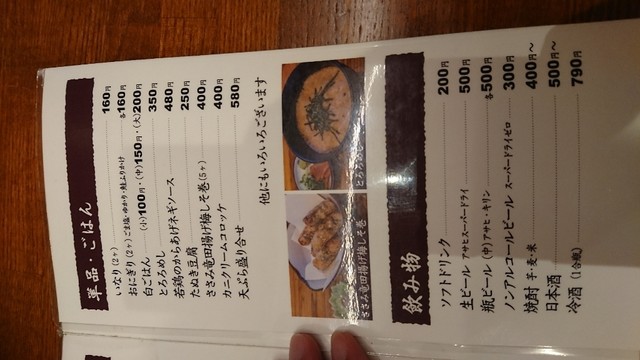 単品・ごはん
いなり(2ヶ) 160円
おにぎり(2ヶ)ごま塩・ゆかり・鮭ふりかけ 各160円
白ごはん (小)100円・(中)150円・(大)200円
とろろめし 350円
若鶏のからあげネギソース 480円
たぬき豆腐 250円
ささみ竜田揚げ梅しそ巻(5ヶ) 400円
カニクリームコロッケ 400円
天ぷら盛り合せ 580円
他にもいろいろございます
とろろめし
ささみ竜田揚げ梅しそ巻
飲み物
ソフトドリンク 200円
生ビール アサヒスーパードライ 500円
瓶ビール(中)アサヒ・キリン 各500円
ノンアルコールビール スーパードライゼロ 300円
焼酎 芋・麦・米 400円〜
日本酒 500円〜
冷酒(1合瓶) 790円